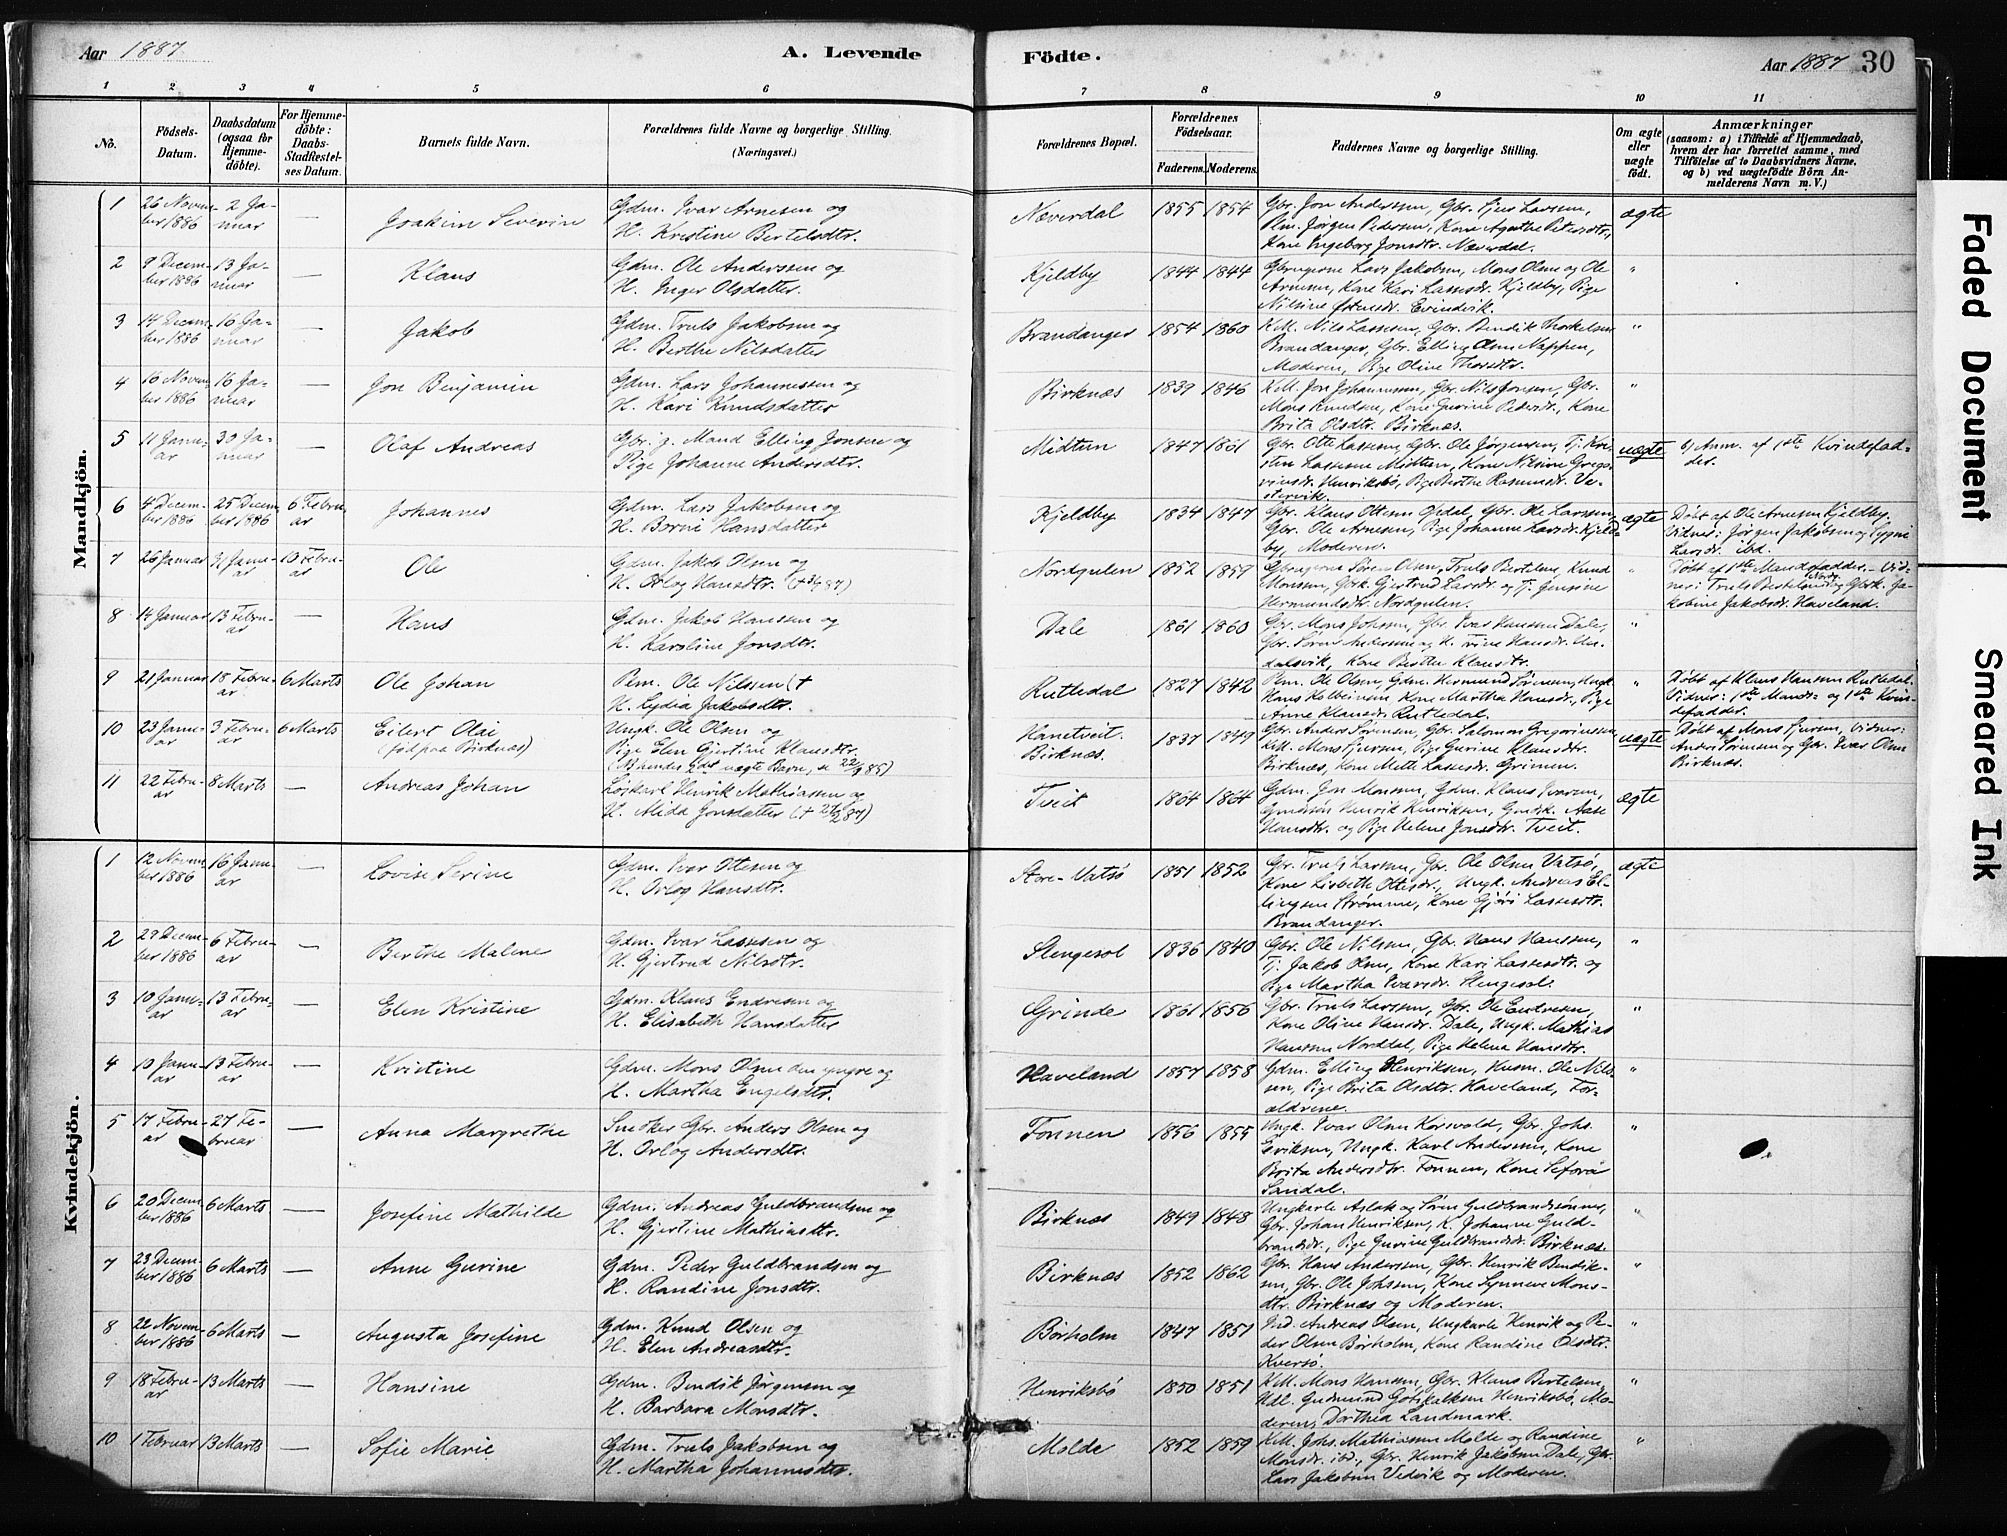 Aar 1887. A. Levende Födte. Aar 1887 30
1 2 3 4 5 6 7 8 9 10 11
No. Födsels-Datum. Daabsdatum (ogsaa for Hjemme-döbte). For Hjemme-döbte: Daabs-Stadfæstelses Datum. Barnets fulde Navn. Forældrenes fulde Navne og borgerlige Stilling. (Næringsvei.) Forældrenes Bopæl. Forældrenes Födselsaar. Faderens. Moderens. Faddernes Navne og borgerlige Stilling. Om ægte eller uægte födt. Anmærkninger (saasom: a) i Tilfælde af Hjemmedaab, hvem der har forrettet samme, med Tilföielse af to Daabsvidners Navne, og b) ved uægtefödte Börn Anmelderens Navn m. V.)
Mandkjön.
1 26 November 1886 2 Januar — Joakim Severin Gdm. Ivar Arnesen og H. Kristine Bertelsdtr. Næverdal 1855 1854 Gbr. Jon Anderssen, Gbr. Sjur Larssen, Plm. Jørgen Pedersen, Kone Agathe Petersdtr., Kone Ingeborg Jonsdtr. Næverdal. ægte
2 9 December 1886 13 Januar — Klaus Gdm. Ole Anderssen og H. Inger Olsdatter. Kjeldby 1844 1844 Gbrugerne Lars Jakobsen, Mons Olsen og Ole Arnesen, Kone Kari Lassesdr. Kjeldby, Pige Nilsine Evindvik. "
3 14 December 1886 16 Januar — Jakob Gdm. Truls Jakobsen og H. Berthe Nilsdatter Brandanger 1854 1860 K.M. Nils Lassesen, Gbr. Bendik Thorkelsen Brandanger, Gbr. Elling Olsen Nappen, Moderen, Pige Olive "
4 16 November 1886 16 Januar — Jon Benjamin Gdm. Lars Johannessen og H. Kari Knudsdatter Birknæs 1839 1846 K.M. Jon Johannessen, Gbr. Nils Jonsen, Gbr. Mons Knudsen, Kone Gurine Pedersdr., Kone Brita Olsdtr. Birknæs. "
5 11 Januar 30 Januar — Olaf Andreas Gbr. g. Mand Elling Jonsen og Pige Johanne Andersdtr. Midtun 1847 1861 Gbr. Otte Lassesen, Gbr. Ole Jørgensen, Tj. Kristen Lassesen Midtun, Kone Nilsine Gregoriusdr. Henriksbø, Pige Berthe Rasmusdr. Vestervik. uægte b) Anm. af 1ste Kvindfadder.
6 4 December 1886 25 December 1886 6 Februar Johannes Gdm. Lars Jakobsen og H. Børni Hansdatter Kjeldby 1834 1847 Gbr. Klaus Ottesen Opdal, Gbr. Ole Larssen, Gbr. Ole Arnesen, Pige Johanne Larsdr. Kjeldby, Moderen. ægte Døbt af Ole Arnesen Kjeldby. Vidner: Jørgen Jakobsen og Sygni Larsdr. ibd.
7 26 Januar Januar 13 Februar Ole Gdm. Jakob Olsen og H. Orlog Hansdtr. Nordgulen 1852 1857 Gbrugerne Søren Olsen, Truls Bertelsen, Knud Monssen, Gbrk. Gjertrud Larsdr. og Tj. Jensine Hermundsdtr. Nordgulen. " Døbt af 1ste Mandsfadder. - Vidner: Truls Bertelsen og Gbrk. Jakobine Jakobsdr. Haveland.
8 14 Januar 13 Februar — Hans Gdm. Jakob Hanssen og H. Karoline Jonsdtr. Dale 1861 1860 Gbr. Mons Johssen, Gbr. Ivar Hanssen Dale, Gbr. Søren Anderssen og K. Trine Hansdr. Undalsvik, Kone Berthe Klausdtr. "
9 21 Januar 18 Februar 6 Marts Ole Johan Pem. Ole Nilssen (+ H. Lydia Jakobsdtr. Rutledal 1827 1842 Pem. Ole Olsen, Gdm. Hermund Sørensen, Ungk. Hans Kolbeinsen, Kone Martha Hansdr., Pige Anne Klausdr. Rutledal. " Døbt af Klaus Hansen Rutledal. Vidner: 1ste Mands- og 1ste Kvindefadder.
10 23 Januar 3 Februar 6 Marts Eilert Olai (född paa Birknæs) Ungk. Ole Olsen og Pige Elen Gjertine Klausdtr. (NB hendes 2det uægte Barn, se 85) Hanetveit. Birknæs. 1837 1849 Gbr. Anders Sørensen, Gbr. Salomon Gregoriussen, K.M. Mons Sjursen, Pige Gurine Klausdtr. Birknæs, Kone Mette Lassesdr. Grimen. uægte Døbt af Mons Sjursen, Vidner: Anders Sørensen og Gbr. Ivar Olsen Birknæs.
11 22 Februar 8 Marts — Andreas Johan Løskarl Henrik Mathiassen og H. Alida Jonsdatter Tveit 1864 1864 Gdm. Jon Monssen, Gdm. Klaus Ivarsen, Gmdsøn Henrik Henriksen, Gmdk. Aase Hansdtr. og Pige Helene Jonsdtr. Tveit. ægte
Kvindekjön.
1 12 November 1886 16 Januar — Lovise Serine Gdm. Ivar Ottesen og H. Orlog Hansdtr. Store-Vatsø 1851 1852 Gbr. Truls Larssen, Gbr. Ole Olsen Vatsø, Kone Lisbeth Ottesdr., Ungk. Andreas Ellingsen Strømme, Kone Gjøri Lassesdtr. Brandanger. ægte
2 29 December 1886 6 Februar — Berthe Malene Gdm. Ivar Lassesen og H. Gjertrud Nilsdtr. Slengesol 1836 1840 Gbr. Ole Nilssen, Gbr. Hans Hanssen, Tj. Jakob Olsen, Kone Kari Lassesdtr. og Pige Martha Ivarsdr. Slengesol. "
3 10 Januar 13 Februar — Elen Kristine Gdm. Klaus Endresen og H. Elisabeth Hansdatter Grinde 1861 1856 Gbr. Truls Larssen, Gbr. Ole Endresen, Kone Oline Hansdr. Dale, Ungk. Mathias Hanssen Norddal, Pige Helena Hansdtr. "
4 10 Januar 13 Februar — Kristine Gdm. Mons Olsen den yngre og H. Martha Engelsdtr. Haveland 1857 1858 Gdm. Elling Henriksen, Husm. Ole Nilssen, Pige Brita Olsdtr. Haveland, Forældrene. "
5 17 Februar 27 Februar — Anna Margrethe Snedker Gbr. Anders Olsen og H. Orlog Andersdtr. Fonnen 1856 1855 Ungk. Ivar Olsen Korsvold, Gbr. Johs. Eriksen, Ungk. Karl Andersen, Kone Brita Andersdtr. Fonnen, Kone Sefora Sandal. "
6 20 December 1886 6 Marts — Josefine Mathilde Gdm. Andreas Guldbrandsen og H. Gjertine Mathiasdtr. Birknæs 1849 1848 Ungkarle Aslak og Søren Guldbrandsønner, Gbr. Johan Henriksen, K. Johanne Guldbrandsdr., Pige Gurine Guldbrandsdr. Birknæs. "
7 23 December 1886 6 Marts — Anne Gurine Gdm. Peder Guldbrandsen og H. Randine Jonsdtr. Birknæs 1852 1862 Gbr. Hans Anderssen, Gbr. Henrik Bendiksen, Gbr. Ole Johssen, Kone Synneve Monsdtr. Birknæs og Moderen. "
8 22 November 1886 6 Marts — Augusta Josefine Gdm. Knud Olsen og H. Elen Andreasdtr. Børholm 1847 1851 Ind. Andreas Olsen, Ungkarle Henrik og Peder Olsen Børholm, Kone Randine Olsdtr. Kversø. "
9 18 Februar 13 Marts — Hansine Gdm. Bendik Jørgensen og H. Barbara Monsdtr. Henriksbø 1850 1851 K.M. Mons Hansen, Gbr. Klaus Bertelsen, Hdl. Gudmund Gotskalksen Henriksbø, Moderen, Dorthea Landmark. "
10 1 Februar 13 Marts — Sofie Marie Gdm. Truls Jakobsen og H. Martha Johannesdtr. Molde 1852 1859 K.M. Johs. Mathiassen Molde og Randine Monsdr. ibd., Gbr. Henrik Jakobsen Dale, Gbr. Lars Jakobsen Vedvik og Moderen. "
Faded Document
Smeared Ink